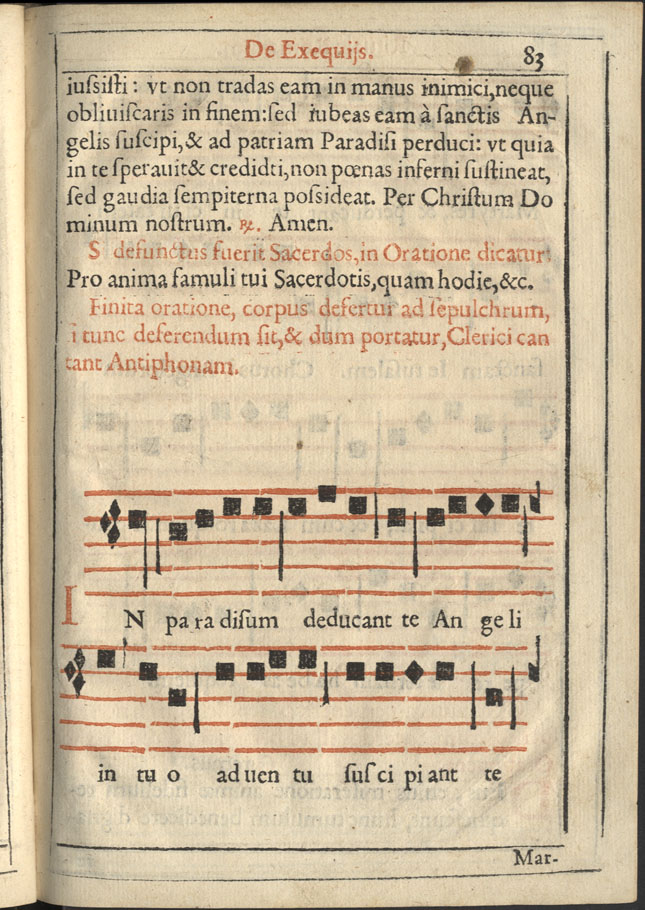 De Exequijs. 83
iuſsiſti : vt non tradas eam in manus inimici,neque
obliuiſcaris in finem:ſed iubeas eam à ſanctis An-
gelis ſuſcipi,& ad patriam Paradiſi perduci: vt quia
in te ſperauit& credidti,non pœnas inferni ſuſtineat,
ſed gaudia ſempiterna poſsideat. Per Chriſtum Do
minum noſtrum. ℟. Amen.
S defunctus fuerit Sacerdos,in Oratione dicatur
Pro anima famuli tui Sacerdotis,quam hodie,&c.
Finita oratione, corpus defertur ad ſepulchrum,
ſi tunc deferendum ſit,& dum portatur,Clerici can
tant Antiphonam.
IN pa ra diſum deducant te An ge li
in tu o ad uen tu ſuſ ci pi ant te
Mar-